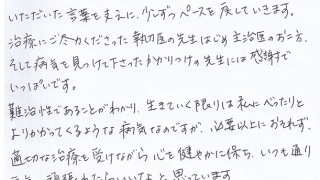 いただいた言葉を支えに、少しずつペースを戻していきます。
治療にご尽力くださった執刀医の先生はじめ主治医のお二方、
そして病気を見つけて下さったかかりつけの先生には感謝で
いっぱいです。
難治性であることがわかり、生きていく限りは私にべったりと
よりかかってくるような病気なのですが、必要以上におそれず、
適切な治療を受けながら心を健やかに保ち、いつも通り
頑張れたらいいなと思っています